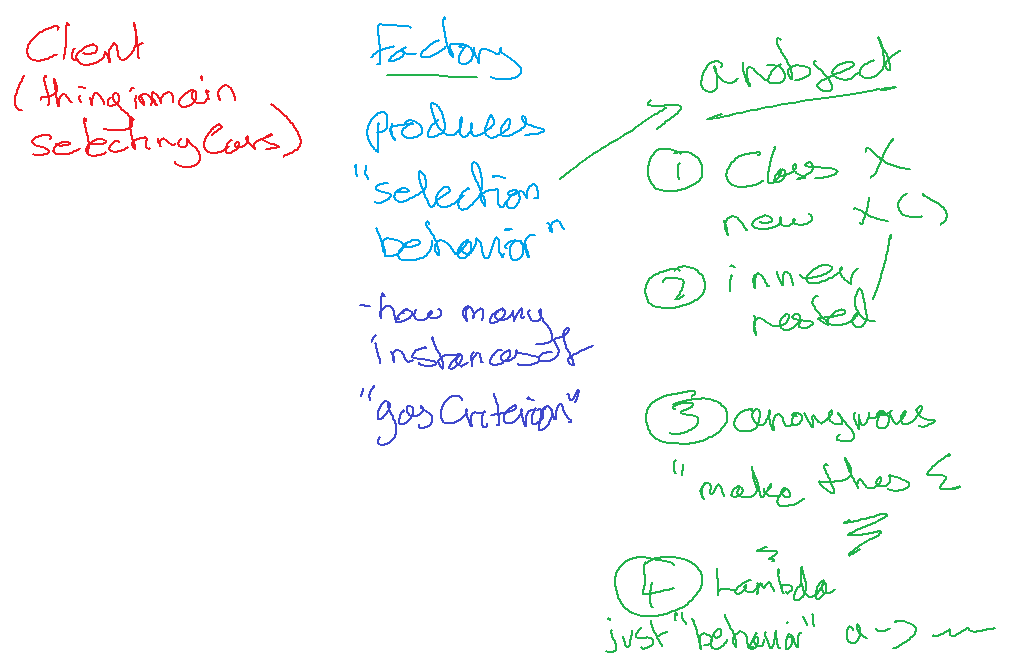 Client
(thing in main
selecting Cars)
Factory
produces
"selection
behavior"
-how many
instances of
"gasCriterion"
an object
① Class X
new X()
② inner
nested
③ anonymous
"make this {
}
④ Lambda
just "behavior" a ->